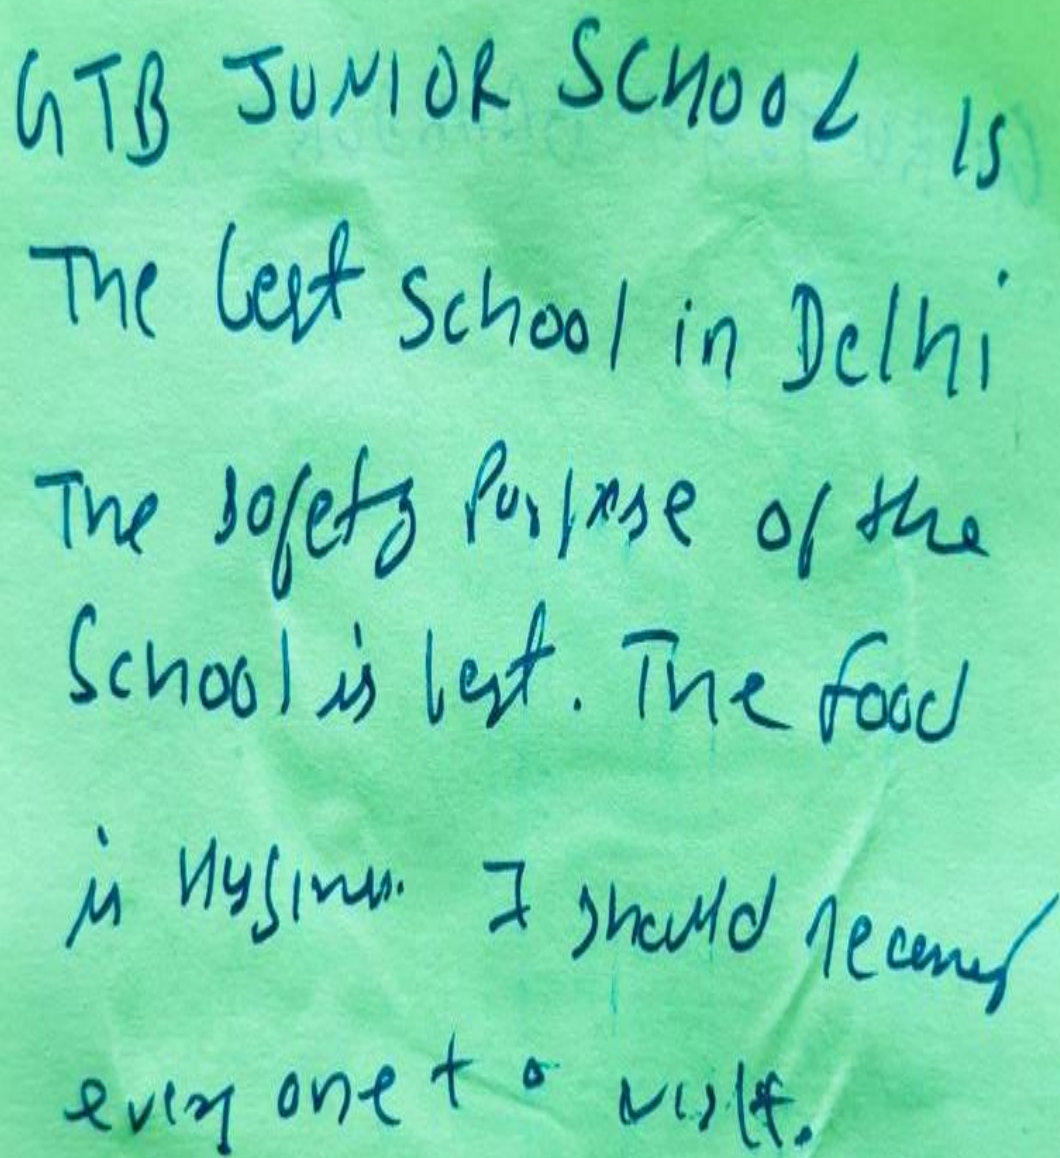 GTB JUNIOR SCHOOL is
The best School in Delhi
The safety Purpose of the
School is best. The food
is
I should
every one to visit.